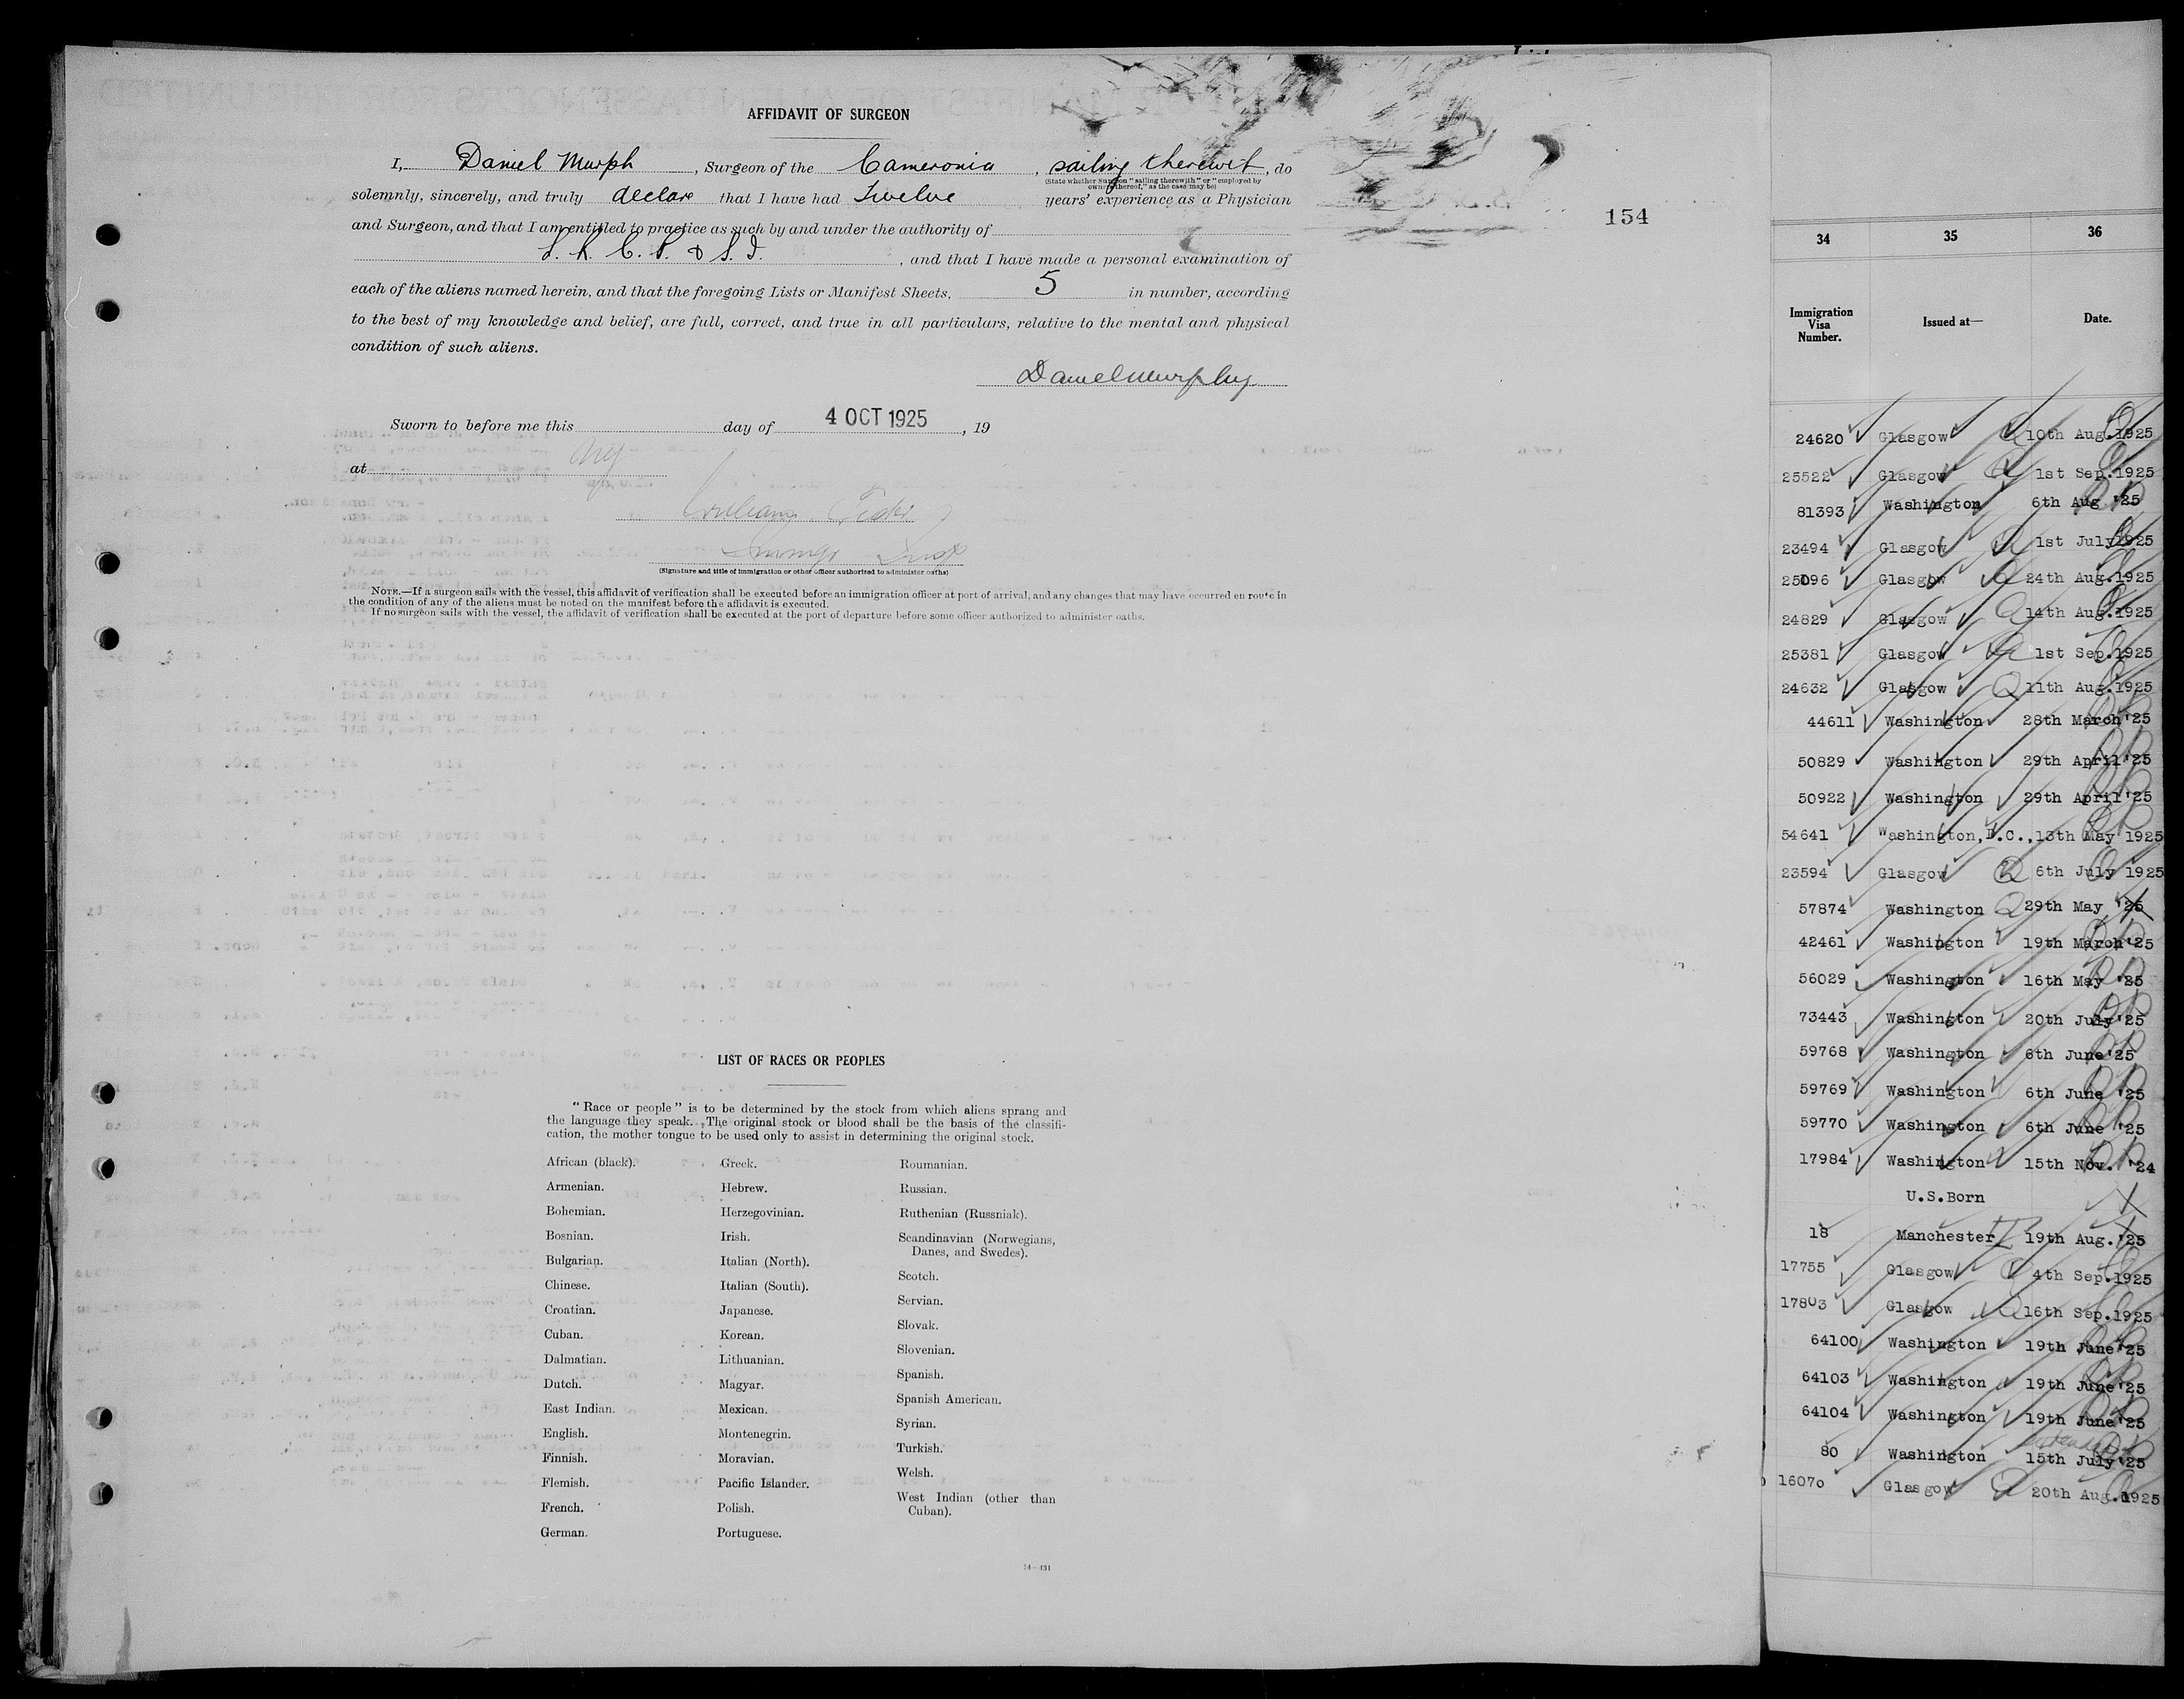 AFFIDAVIT OF SURGEON
I, Daniel Murph, Surgeon of the Cameronia, sailing therewit, do
(State whether Surgeon "sailing therewith" or "employed by
owners thereof," as the case may be)
solemnly, sincerely, and truly declare that I have had Twelve years' experience as a Physician
and Surgeon, and that I am entitled to practice as such by and under the authority of
L. R. C. P. & S. I., and that I have made a personal examination of
each of the aliens named herein, and that the foregoing Lists or Manifest Sheets, 5 in number, according
to the best of my knowledge and belief, are full, correct, and true in all particulars, relative to the mental and physical
condition of such aliens.
Daniel Murphy
Sworn to before me this day of 4 OCT 1925, 19
at NY
William
(Signature and title of immigration or other officer authorized to administer oaths)
NOTE.—If a surgeon sails with the vessel, this affidavit of verification shall be executed before an immigration officer at port of arrival, and any changes that may have occurred en route in
the condition of any of the aliens must be noted on the manifest before the affidavit is executed.
If no surgeon sails with the vessel, the affidavit of verification shall be executed at the port of departure before some officer authorized to administer oaths.
154
LIST OF RACES OR PEOPLES
"Race or people" is to be determined by the stock from which aliens sprang and
the language they speak. The original stock or blood shall be the basis of the classifi-
cation, the mother tongue to be used only to assist in determining the original stock.
African (black).
Armenian.
Bohemian.
Bosnian.
Bulgarian.
Chinese.
Croatian.
Cuban.
Dalmatian.
Dutch.
East Indian.
English.
Finnish.
Flemish.
French.
German.
Greek.
Hebrew.
Herzegovinian.
Irish.
Italian (North).
Italian (South).
Japanese.
Korean.
Lithuanian.
Magyar.
Mexican.
Montenegrin.
Moravian.
Pacific Islander.
Polish.
Portuguese.
Roumanian.
Russian.
Ruthenian (Russniak).
Scandinavian (Norwegians,
Danes, and Swedes).
Scotch.
Servian.
Slovak.
Slovenian.
Spanish.
Spanish American.
Syrian.
Turkish.
Welsh.
West Indian (other than
Cuban).
14—431
34 35 36
Immigration
Visa
Number. Issued at— Date.
24620 Glasgow 10th Aug.1925
25522 Glasgow 1st Sep.1925
81393 Washington 6th Aug '25
23494 Glasgow 1st July1925
25096 Glasgow 24th Aug.1925
24829 Glasgow 14th Aug.1925
25381 Glasgow 1st Sep.1925
24632 Glasgow 11th Aug.1925
44611 Washington 28th March'25
50829 Washington 29th April'25
50922 Washington 29th April'25
54641 Washington,D.C.,13th May 1925
23594 Glasgow 6th July 1925
57874 Washington 29th May '25
42461 Washington 19th March'25
56029 Washington 16th May '25
73443 Washington 20th July'25
59768 Washington 6th June'25
59769 Washington 6th June '25
59770 Washington 6th June '25
17984 Washington 15th Nov. '24
U.S.Born
18 Manchester 19th Aug.'25
17755 Glasgow 4th Sep.1925
17803 Glasgow 16th Sep.1925
64100 Washington 19th June'25
64103 Washington 19th June'25
64104 Washington 19th June'25
80 Washington 15th July'25
16070 Glasgow 20th Aug.1925